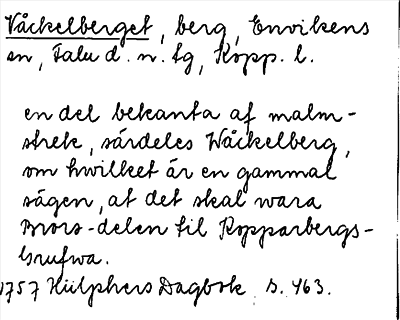 Våckelberget, berg, Envikens
sn, Falu d. n. tg, Kopp. l.
en del bekanta af malm-
strek, särdeles Wåckelberg,
om hwilket är en gammal
sägen, at det skal wara
mors-delen til Kopparbergs-
Grufwa.
1757 Hülphers Dagbok s. 463.